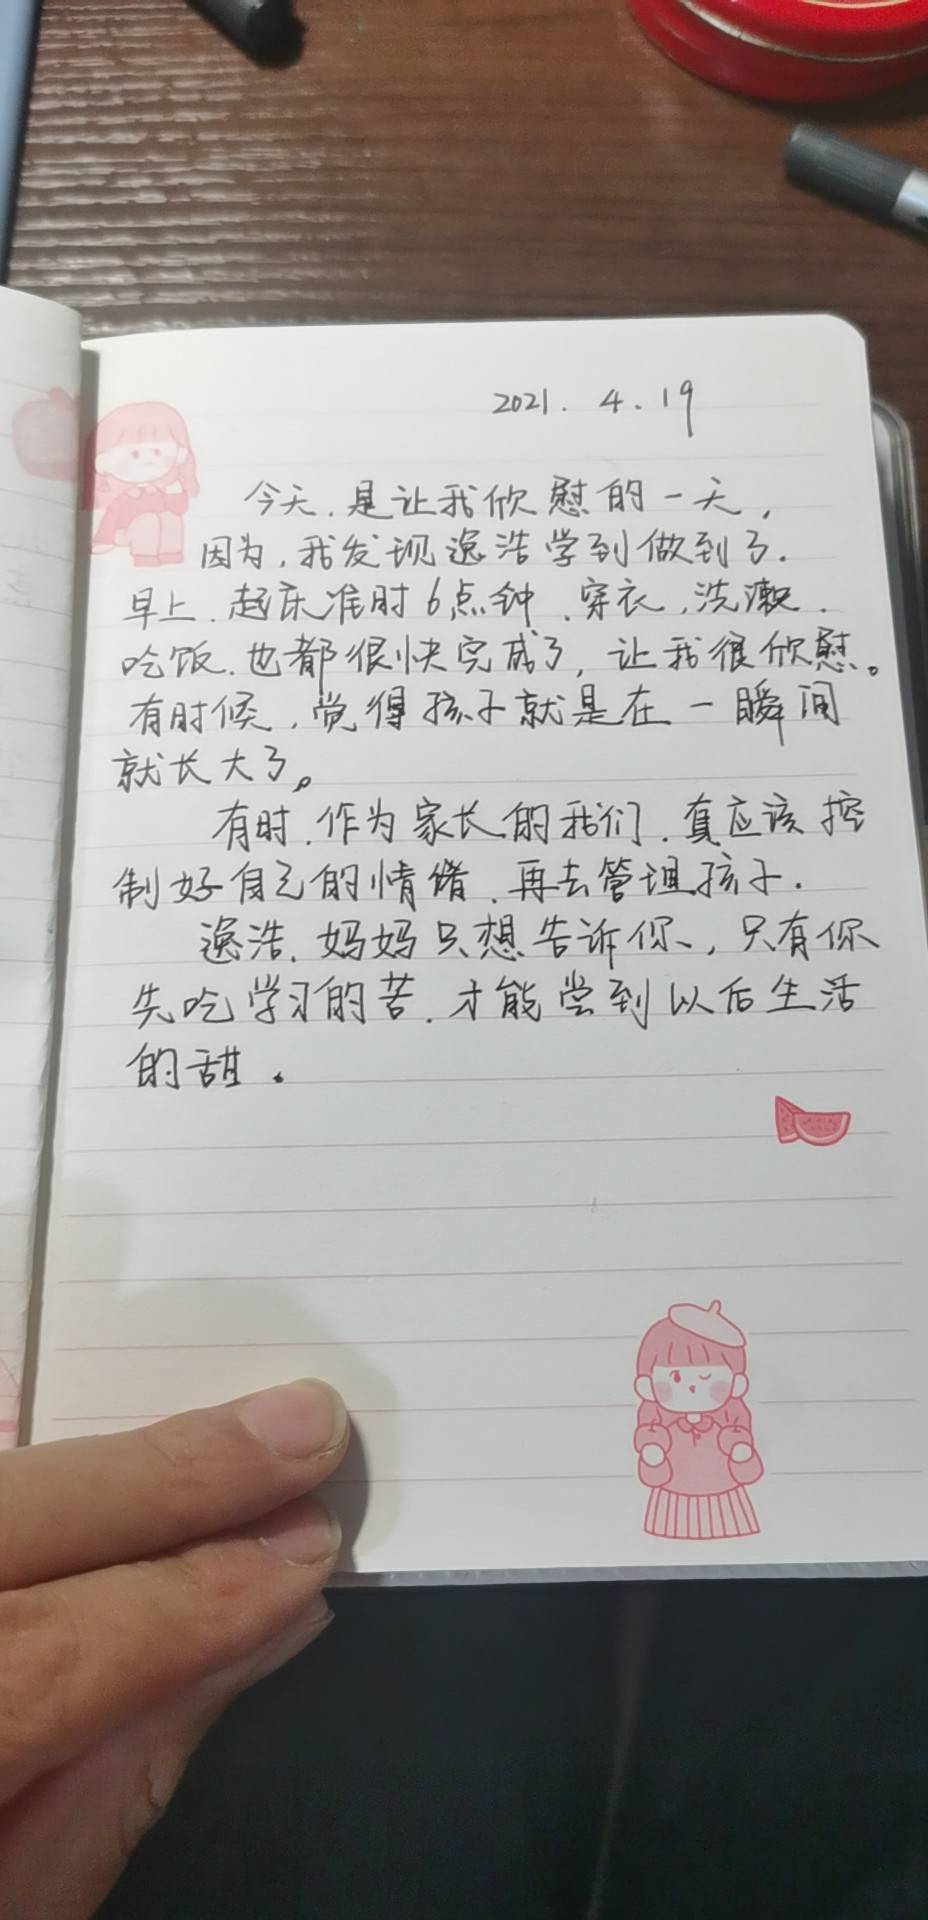 2021.4.19
今天,是让我欣慰的一天,
因为,我发现逸浩学到做到了.
早上,起床准时6点钟,穿衣,洗漱,
吃饭,也都很快完成了,让我很欣慰。
有时候,觉得孩子就是在一瞬间
就长大了。
有时,作为家长的我们,真应该控
制好自己的情绪,再去管理孩子.
逸浩,妈妈只想告诉你,只有你
先吃学习的苦,才能尝到以后生活
的甜.